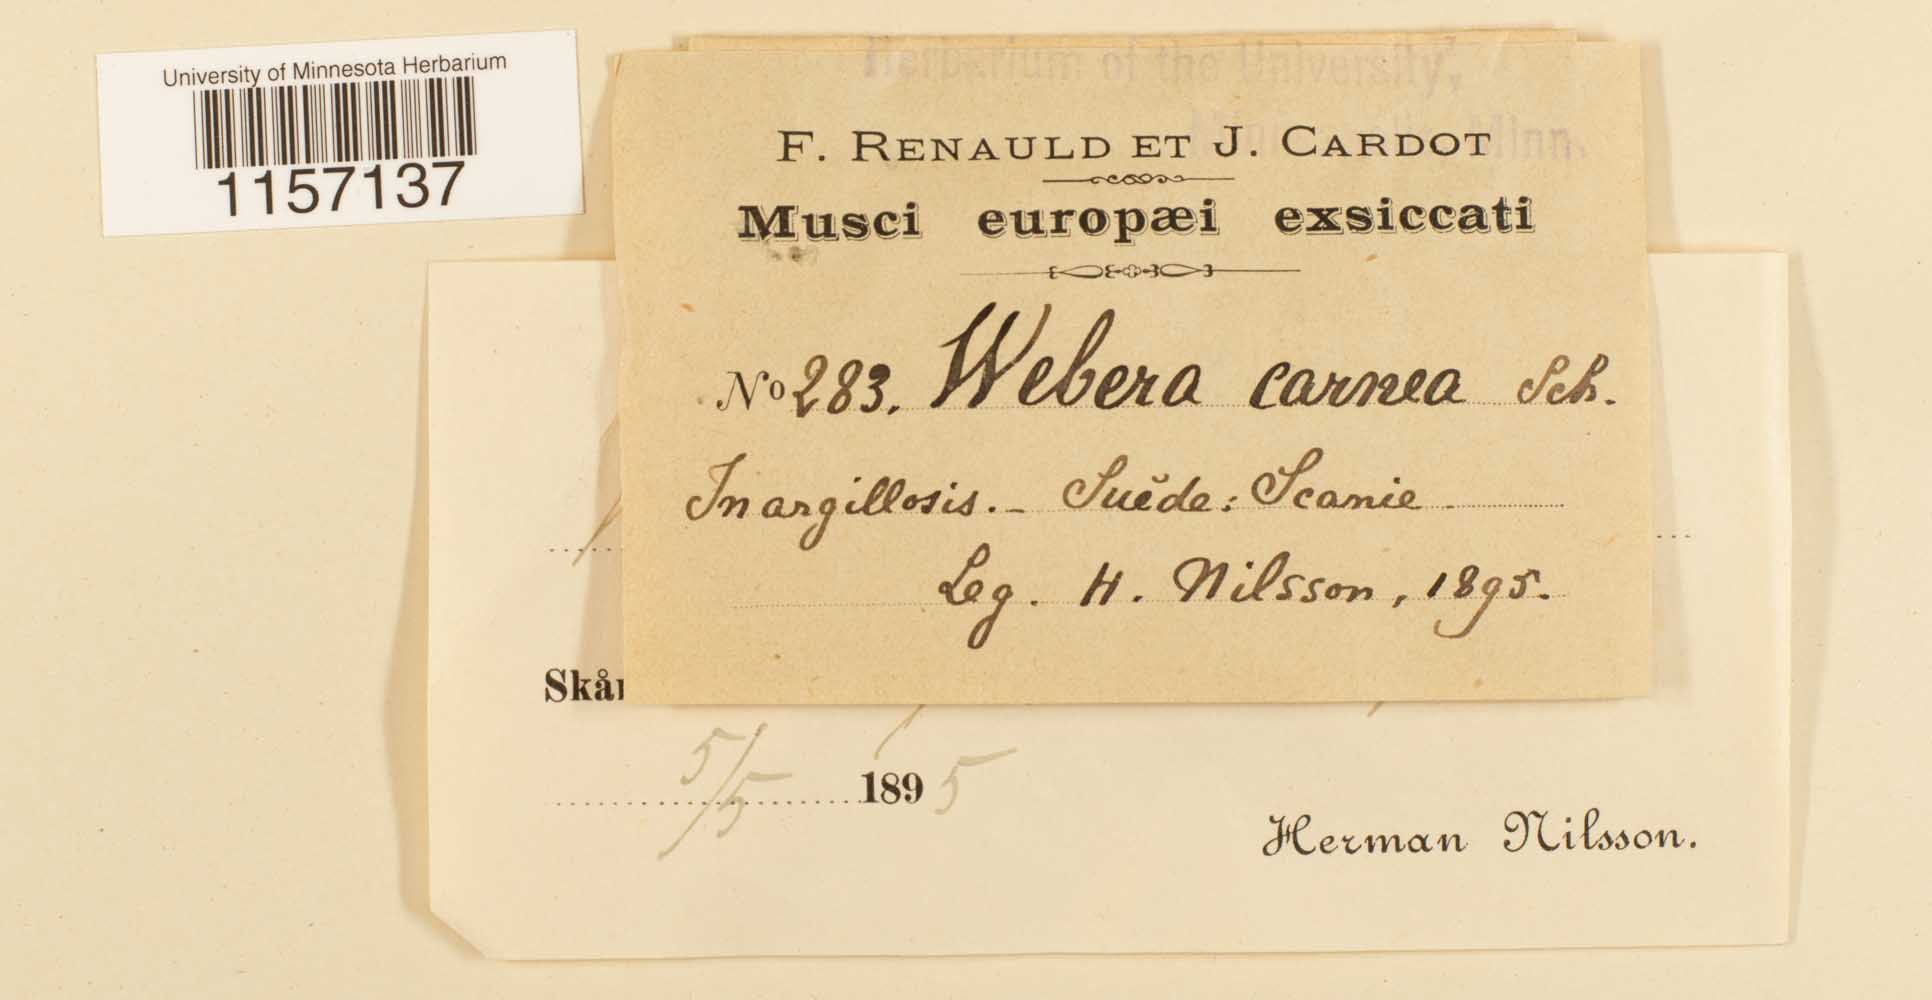 University of Minnesota Herbarium
1157137
Herbarium of the University,
Minn.
F. RENAULD ET J. CARDOT
Musci europæi exsiccati
No 283. Webera carnea Sch.
In argillosis. - Suède: Scanie
Leg. H. Nilsson, 1895.
5/5 1895
Herman Nilsson.